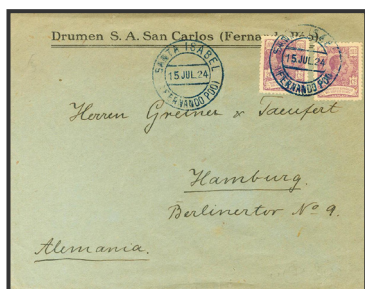 Drumen S. A. San Carlos (Fernando Póo)
SANTA ISABEL
15 JUL. 24
(FERNANDO POO)
SANTA ISABEL
15 JUL. 24
(FERNANDO POO)
Herren Greiner & Taeufert
Hamburg.
Berlinertor No 9.
Alemania.